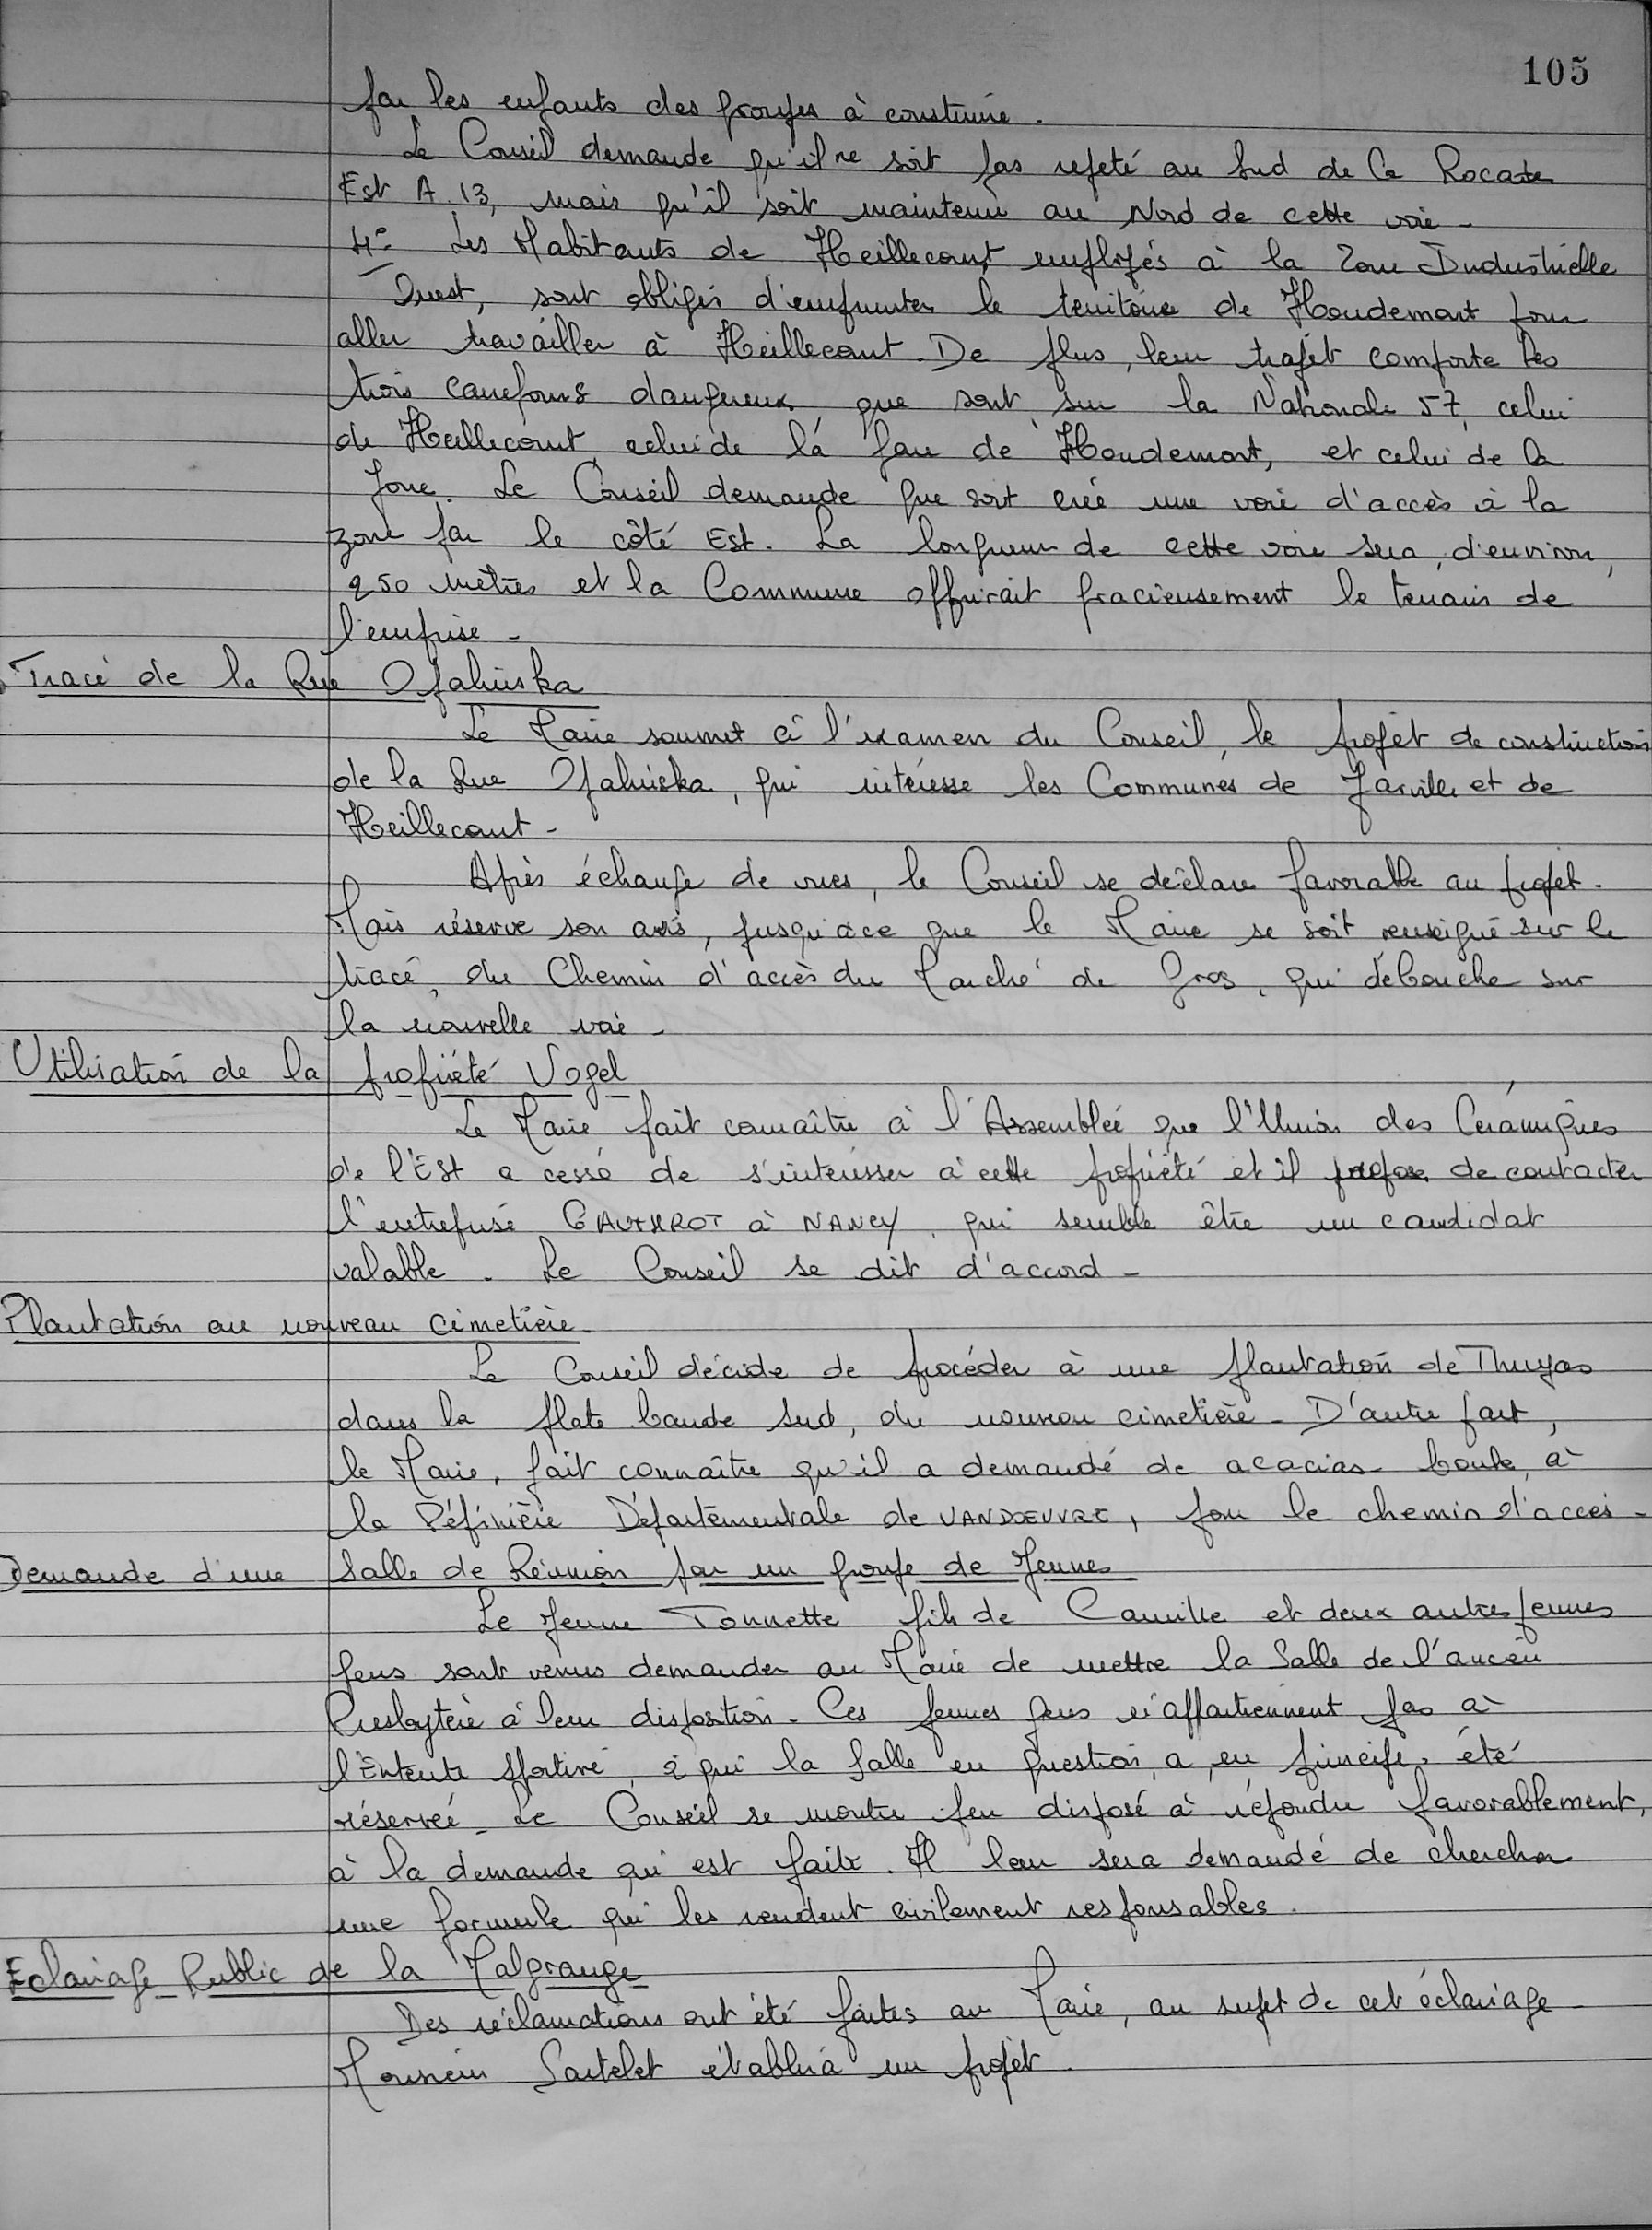 105
par les enfants des groupes à construire.
Le Conseil demande qu'il ne soit pas rejeté au Sud de la Rocade
Est A.13, mais qu'il soit maintenu au Nord de cette voie -
4° Les Habitants de Heillecourt employés à la Zone Industrielle
Ouest, sont obligés d'emprunter le territoire de Houdemont pour
aller travailler à Heillecourt. De plus, leur trajet comporte les
trois carrefours dangereux, que sont sur la Nationale 57, celui
de Heillecourt, celui de la gare de Houdemont, et celui de la
Zone. Le Conseil demande que soit créé une voie d'accès à la
zone par le côté Est. La longueur de cette voie sera, d'environ,
250 mètres et la Commune offrirait gracieusement le terrain de
l'emprise -
Tracé de la Rue Ojalviska
Le Maire soumet à l'examen du Conseil, le projet de construction
de la Rue Ojalviska, qui intéresse les Communes de Jarville et de
Heillecourt -
Après échange de vues, le Conseil se déclare favorable au projet.
Mais réserve son avis, jusqu'à ce que le Maire se soit renseigné sur le
tracé, du Chemin d'accès du Marché de Gros, qui débouche sur
la nouvelle voie -
Utilisation de la propriété Vogel
Le Maire fait connaître à l'Assemblée que l'Union des Céramiques
de l'Est a cessé de s'intéresser à cette propriété et il propose de contacter
l'entreprise GAUTHROT à NANCY, qui semble être un candidat
valable. Le Conseil se dit d'accord -
Plantation au nouveau cimetière -
Le Conseil décide de procéder à une plantation de Thuyas
dans la plate bande Sud, du nouveau cimetière - D'autre part,
le Maire, fait connaître qu'il a demandé de acacias - boule, à
la Pépinière Départementale de VANDOEUVRE, pour le chemin d'accès -
Demande d'une Salle de Réunion par un groupe de Jeunes
Le Jeune Tonnette fils de Camille et deux autres jeunes
gens sont venus demander au Maire de mettre la Salle de l'ancien
Presbytère à leur disposition. Ces jeunes gens n'appartiennent pas à
l'Entente Sportive, à qui la Salle en question, a, en principe, été
réservée. Le Conseil se montre peu disposé à répondre favorablement,
à la demande qui est faite. Il leur sera demandé de chercher
une formule qui les rendent civilement responsables.
Eclairage Public de la Malgrange
Des réclamations ont été faites au Maire, au sujet de cet éclairage -
Monsieur Sartelet établira un projet.